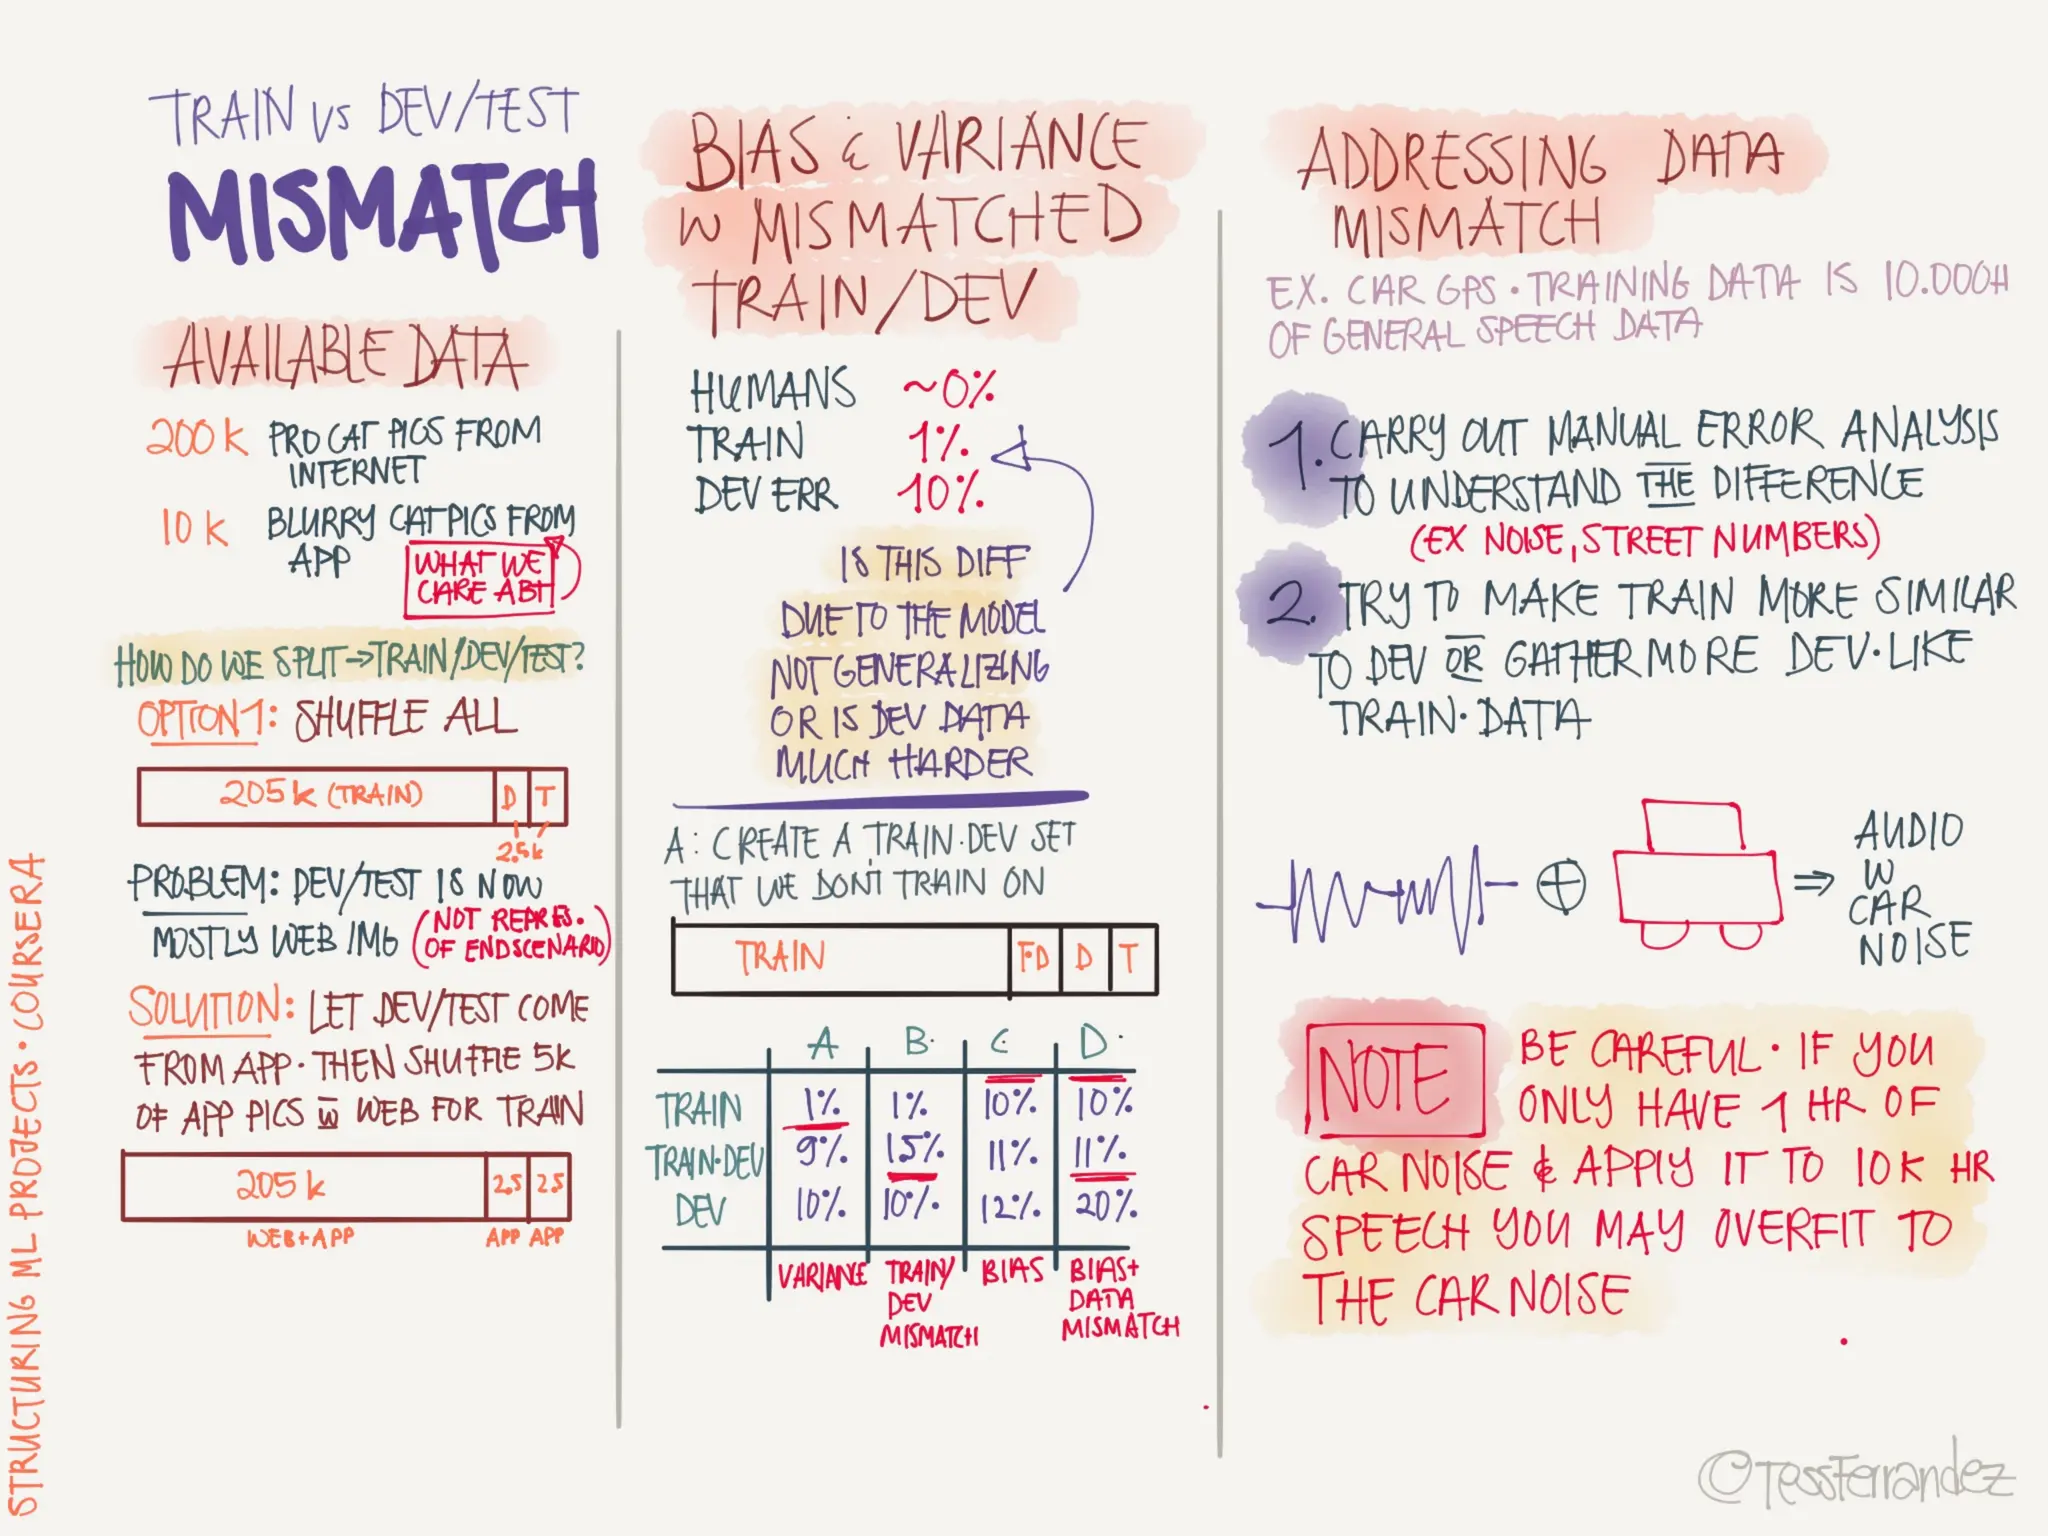 TRAIN vs DEV/TEST
MISMATCH
AVAILABLE DATA
200k PRO CAT PICS FROM
INTERNET
10k BLURRY CAT PICS FROM
APP
WHAT WE
CARE ABT
HOW DO WE SPLIT→TRAIN/DEV/TEST?
OPTION 1: SHUFFLE ALL
205k (TRAIN) D T
2.5k
PROBLEM: DEV/TEST IS NOW
MOSTLY WEB IMG (NOT REPRES.
OF END SCENARIO)
SOLUTION: LET DEV/TEST COME
FROM APP. THEN SHUFFLE 5K
OF APP PICS w WEB FOR TRAIN
205k 2.5 2.5
WEB+APP APP APP
STRUCTURING ML PROJECTS • COURSERA
BIAS & VARIANCE
W MISMATCHED
TRAIN/DEV
HUMANS ~0%
TRAIN 1%
DEV ERR 10%
IS THIS DIFF
DUE TO THE MODEL
NOT GENERALIZING
OR IS DEV DATA
MUCH HARDER
A: CREATE A TRAIN·DEV SET
THAT WE DON'T TRAIN ON
TRAIN T·D D T
A B C D
TRAIN 1% 1% 10% 10%
TRAIN·DEV 9% 1.5% 11% 11%
DEV 10% 10% 12% 20%
VARIANCE TRAIN/ BIAS BIAS+
DEV DATA
MISMATCH MISMATCH
ADDRESSING DATA
MISMATCH
EX. CAR GPS • TRAINING DATA IS 10.000H
OF GENERAL SPEECH DATA
1. CARRY OUT MANUAL ERROR ANALYSIS
TO UNDERSTAND THE DIFFERENCE
(EX NOISE, STREET NUMBERS)
2. TRY TO MAKE TRAIN MORE SIMILAR
TO DEV OR GATHER MORE DEV·LIKE
TRAIN·DATA
⊕ ⇒ AUDIO
W
CAR
NOISE
NOTE BE CAREFUL • IF YOU
ONLY HAVE 1 HR OF
CAR NOISE & APPLY IT TO 10K HR
SPEECH YOU MAY OVERFIT TO
THE CAR NOISE
©TessFerrandez